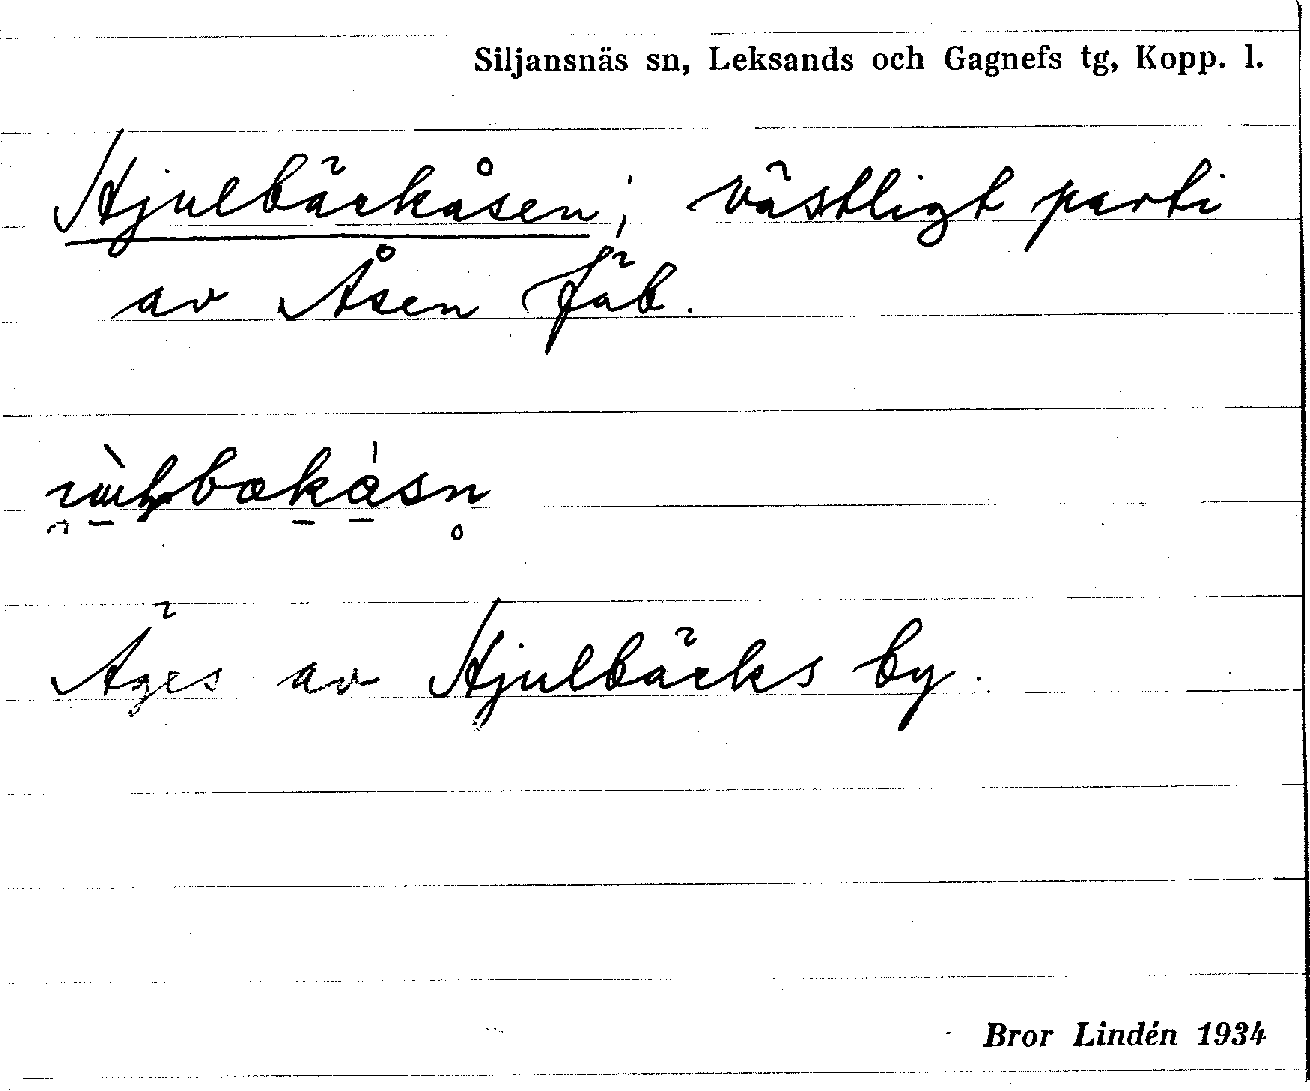 Siljansnäs sn, Leksands och Gagnefs tg, Kopp. l.
Hjulbäckåsen; västligt parti
av Åsen fäb.
Äges av Hjulbäcks by.
Bror Lindén 1934